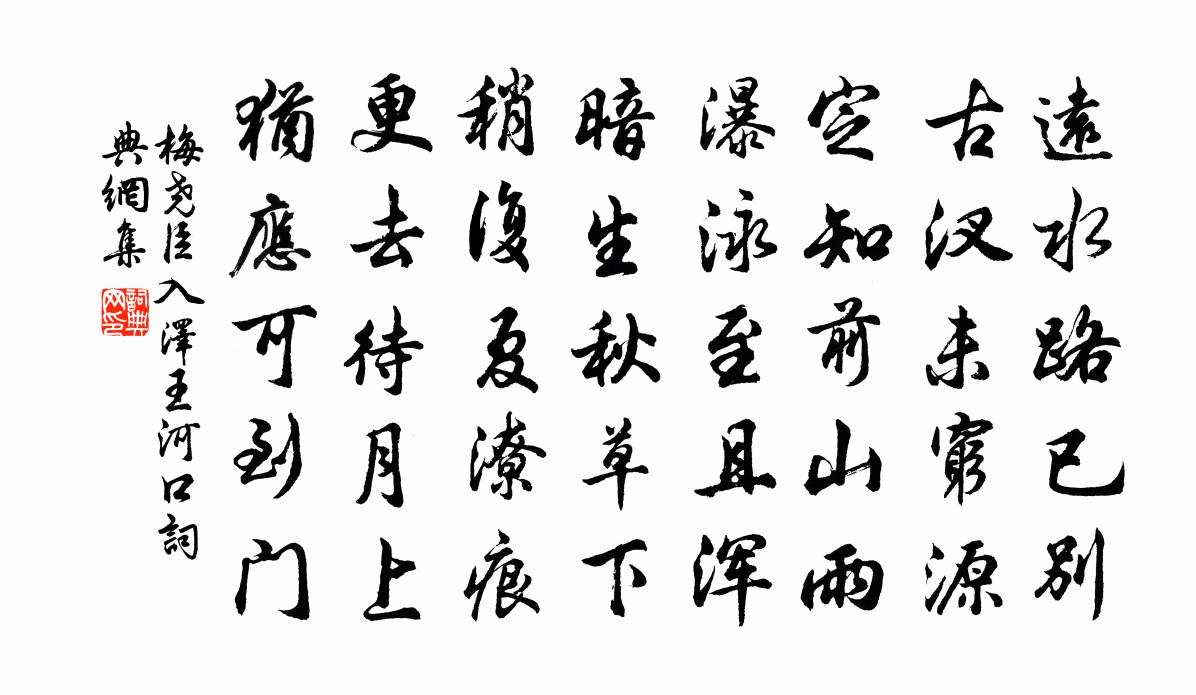 遠水路已別
古汊未窮源
定知前山雨
瀑泳至且浑
暗生秋草下
稍復夏潦痕
更去待月上
猶應可到门
梅尧臣入澤王河口詞
典網集
詞典网印